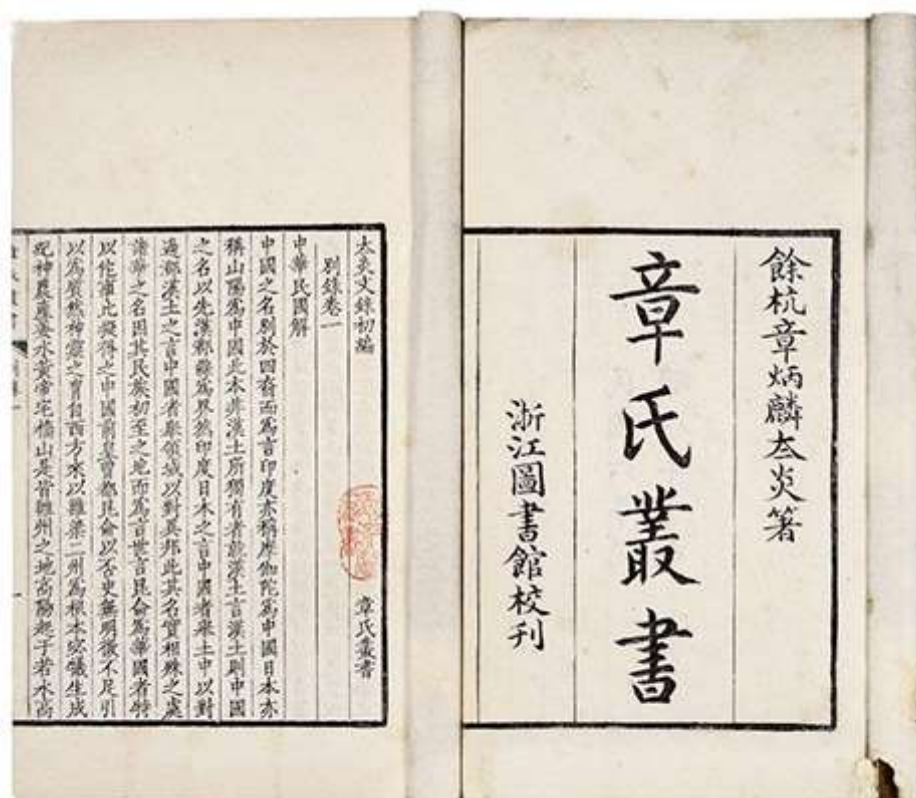 餘杭章炳麟夳炎箸
章氏叢書
浙江圖書館校刊
太炎文錄初編 章氏叢書
別錄卷一
中華民國解
中國之名別於四裔而爲言印度亦稱摩伽陀爲中國日本亦
稱山陽爲中國此本非漢土所獨有者就漢土言漢土則中國
之名以先漢郡縣爲界然印度日本之言中國者舉土中以對
邊郡漢土之言中國者舉領域以對異邦此其名實相殊之處
諸華之名因其民族初至之地而爲言世言昆侖爲華國者特
以佗事比擬得之中國前皇曾都昆侖以否史無明徵不足引
以爲質然神靈之胄自西方來以雍梁二州爲根本宓犧生成
紀神農產姜水黃帝宅橋山是皆雍州之地高陽起于若水高